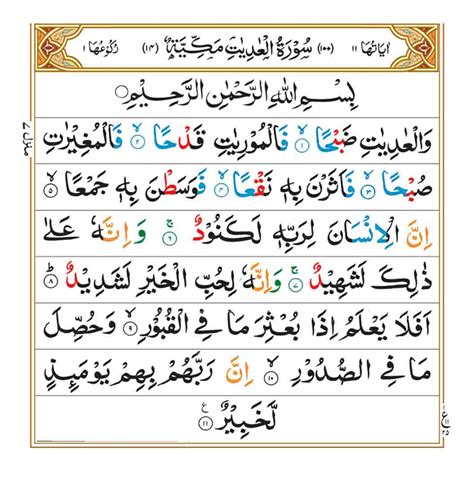 اٰيَاتُهَا ١١ (١٠٠) سُوْرَةُ الْعٰدِيٰتِ مَكِّيَّةٌ (١٤) رُكُوْعُهَا ١
بِسْمِ اللهِ الرَّحْمٰنِ الرَّحِيْمِ
وَالْعٰدِيٰتِ ضَبْحًا ۙ﴿١﴾ فَالْمُوْرِيٰتِ قَدْحًا ۙ﴿٢﴾ فَالْمُغِيْرٰتِ
صُبْحًا ۙ﴿٣﴾ فَاَثَرْنَ بِهٖ نَقْعًا ۙ﴿٤﴾ فَوَسَطْنَ بِهٖ جَمْعًا ۙ﴿٥﴾
اِنَّ الْاِنْسَانَ لِرَبِّهٖ لَكَنُوْدٌ ۚ﴿٦﴾ وَاِنَّهٗ عَلٰى
ذٰلِكَ لَشَهِيْدٌ ۚ﴿٧﴾ وَاِنَّهٗ لِحُبِّ الْخَيْرِ لَشَدِيْدٌ ؕ﴿٨﴾
اَفَلَا يَعْلَمُ اِذَا بُعْثِرَ مَا فِى الْقُبُوْرِ ۙ﴿٩﴾ وَحُصِّلَ
مَا فِى الصُّدُوْرِ ۙ﴿١٠﴾ اِنَّ رَبَّهُمْ بِهِمْ يَوْمَئِذٍ
لَّخَبِيْرٌ ﴿١١﴾ ع
منزل ٧